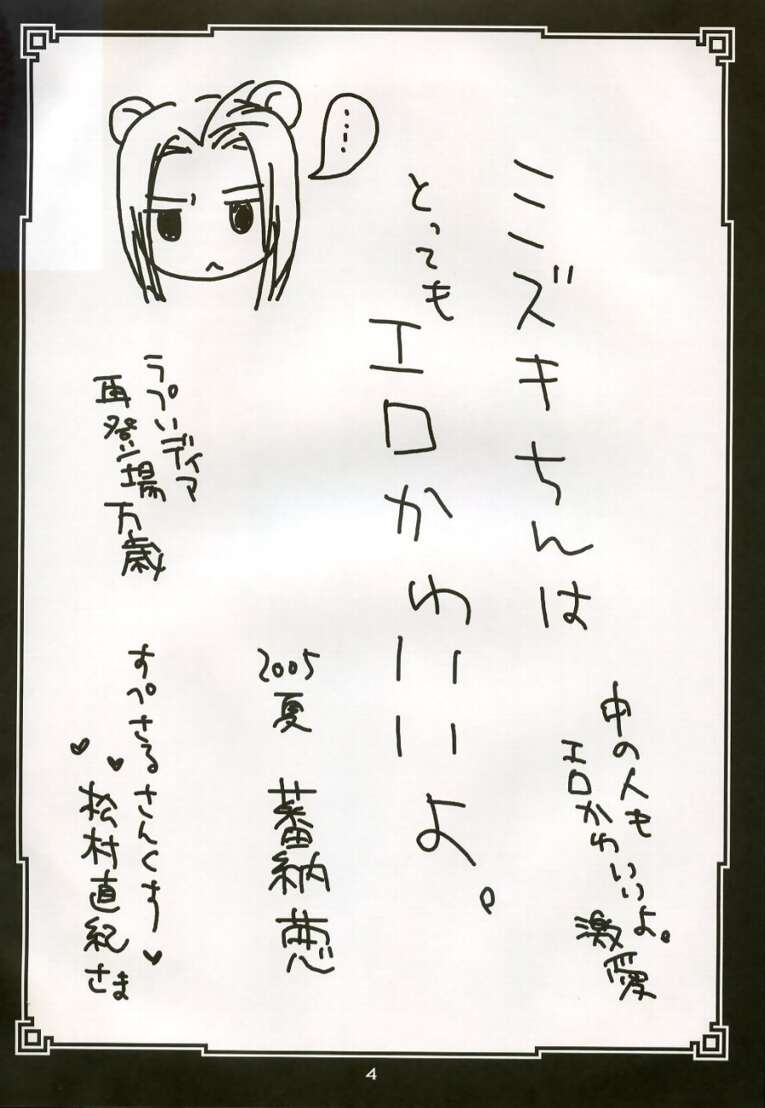 ミズキちんは
とっても
エロかわいいよ。
中の人も
エロかわいいよ。
激愛
…
2005
夏
蕃納 葱
らぷぃディア
再登場万歳
すぺさるさんくす♥
♥♥松村直紀さま
4